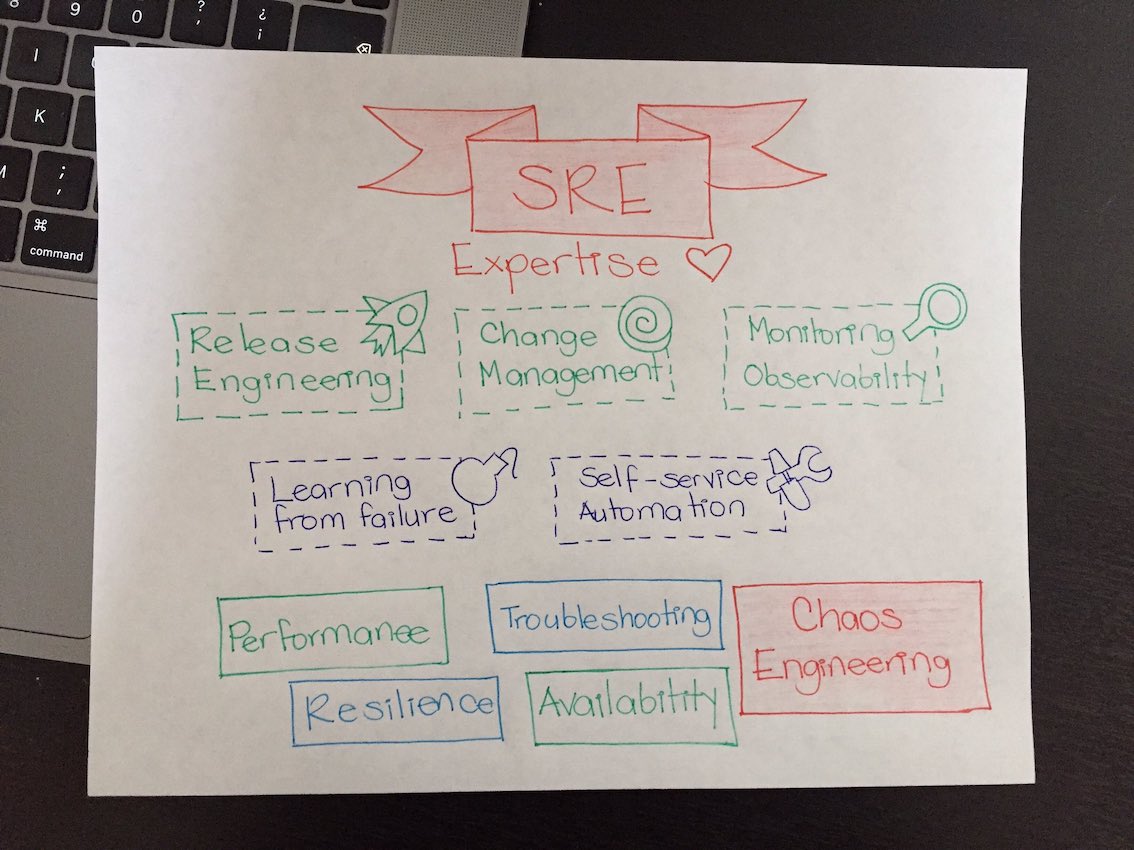 9
0
?
,
¿
¡
I
K
;
,
⌘
command
SRE
Expertise
Release
Engineering
Change
Management
Monitoring
Observability
Learning
from failure
Self-service
Automation
Performance
Troubleshooting
Chaos
Engineering
Resilience
Availability